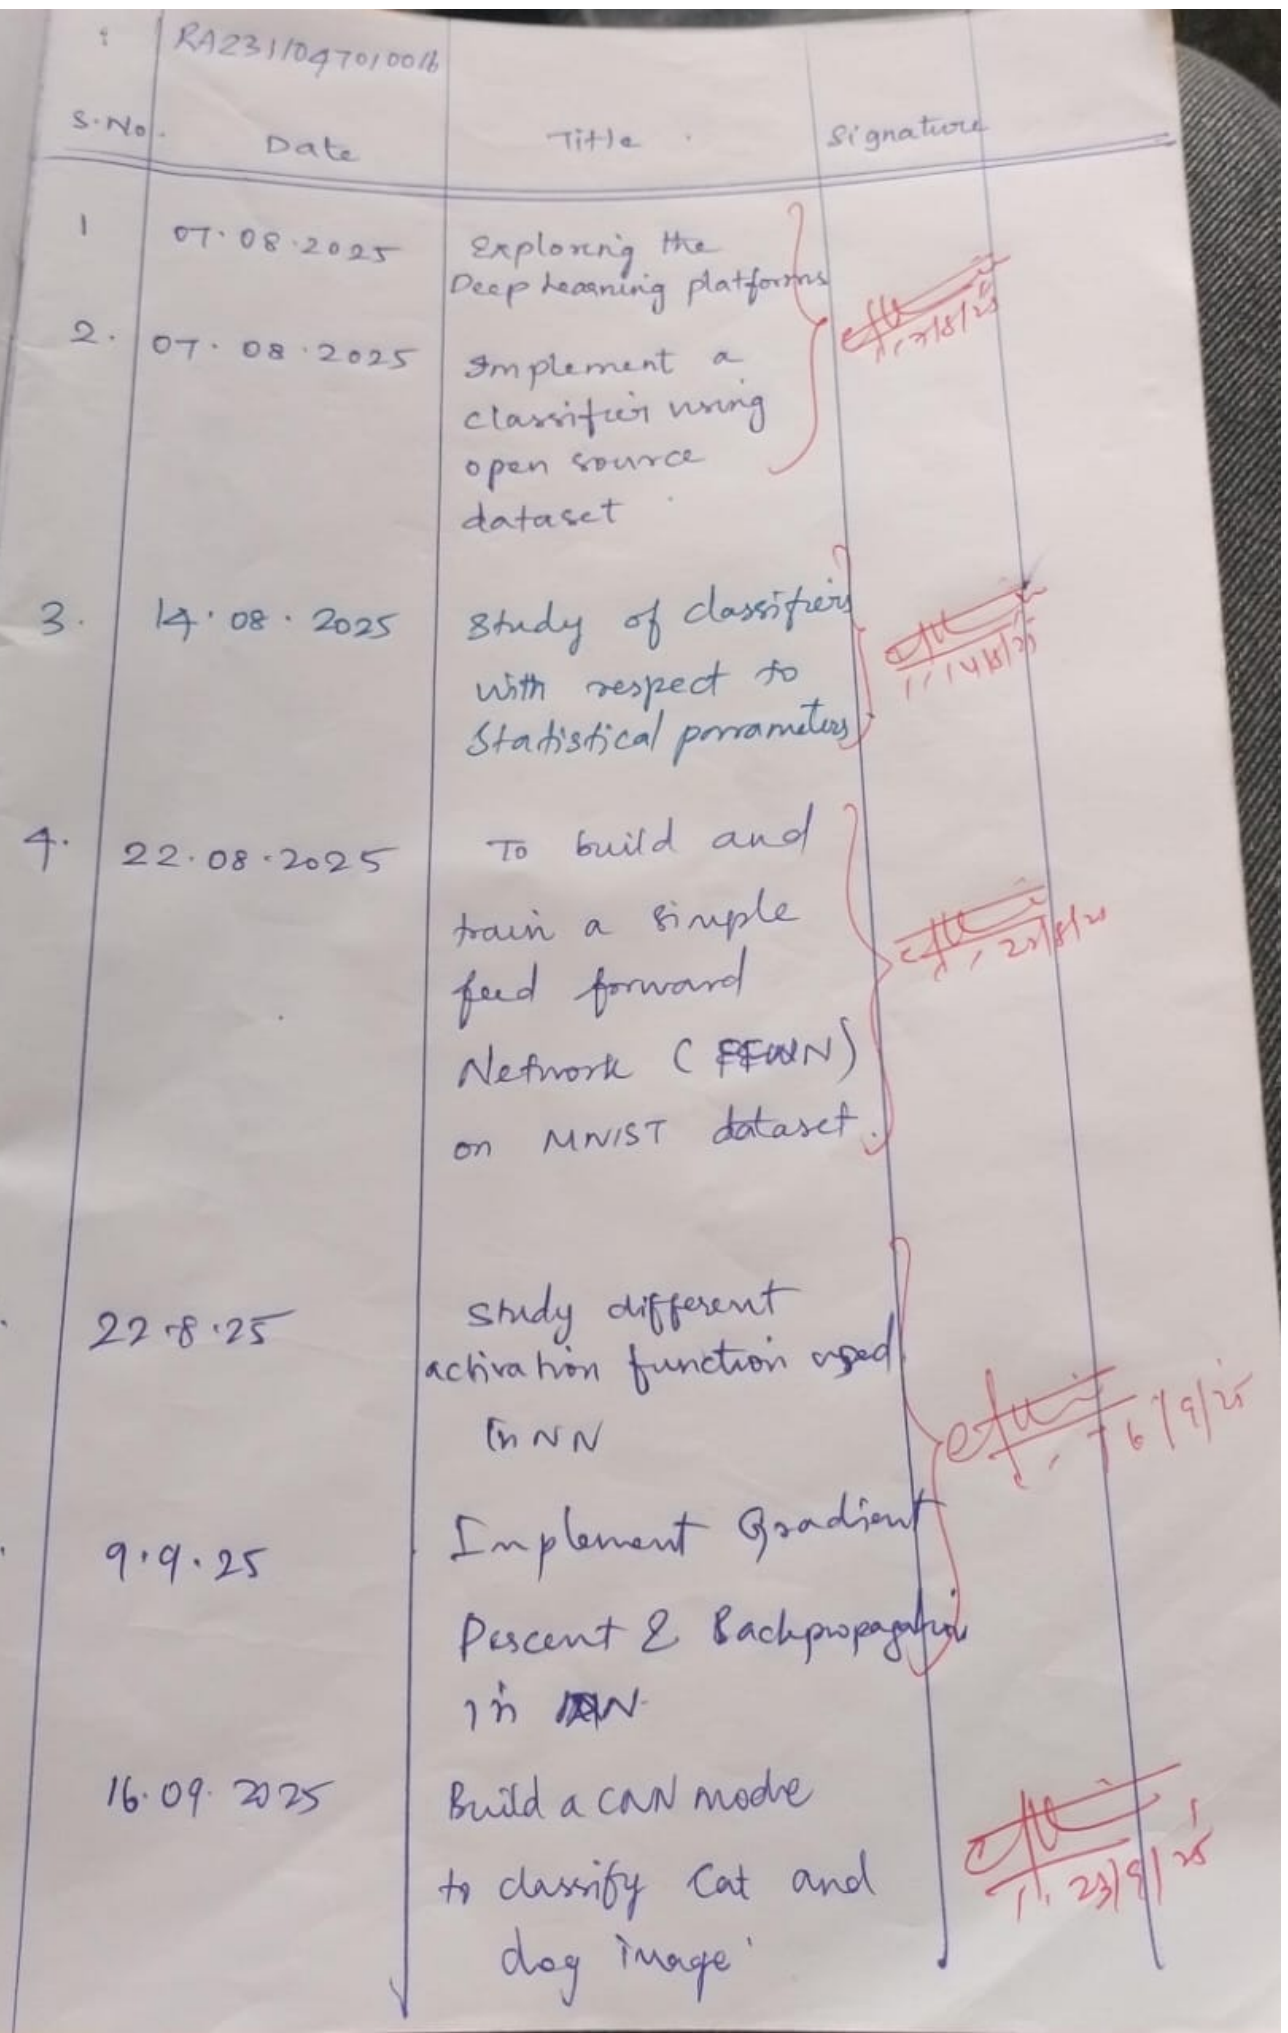 RA2311047010016
S.No. Date Title Signature
1 07.08.2025 Exploring the
Deep Learning platforms
2. 07.08.2025 Implement a
classifier using
open source
dataset
3. 14.08.2025 Study of classifiers
with respect to
Statistical parrameters
14/8/25
4. 22.08.2025 To build and
train a simple
feed forward
Network (FFNN)
on MNIST dataset.
22/8/25
22.8.25 Study different
activation function used
in NN
16/9/25
9.9.25 Implement Gradient
Descent & Backpropagation
in
16.09.2025 Build a CNN mode
to classify Cat and
dog image
23/9/25